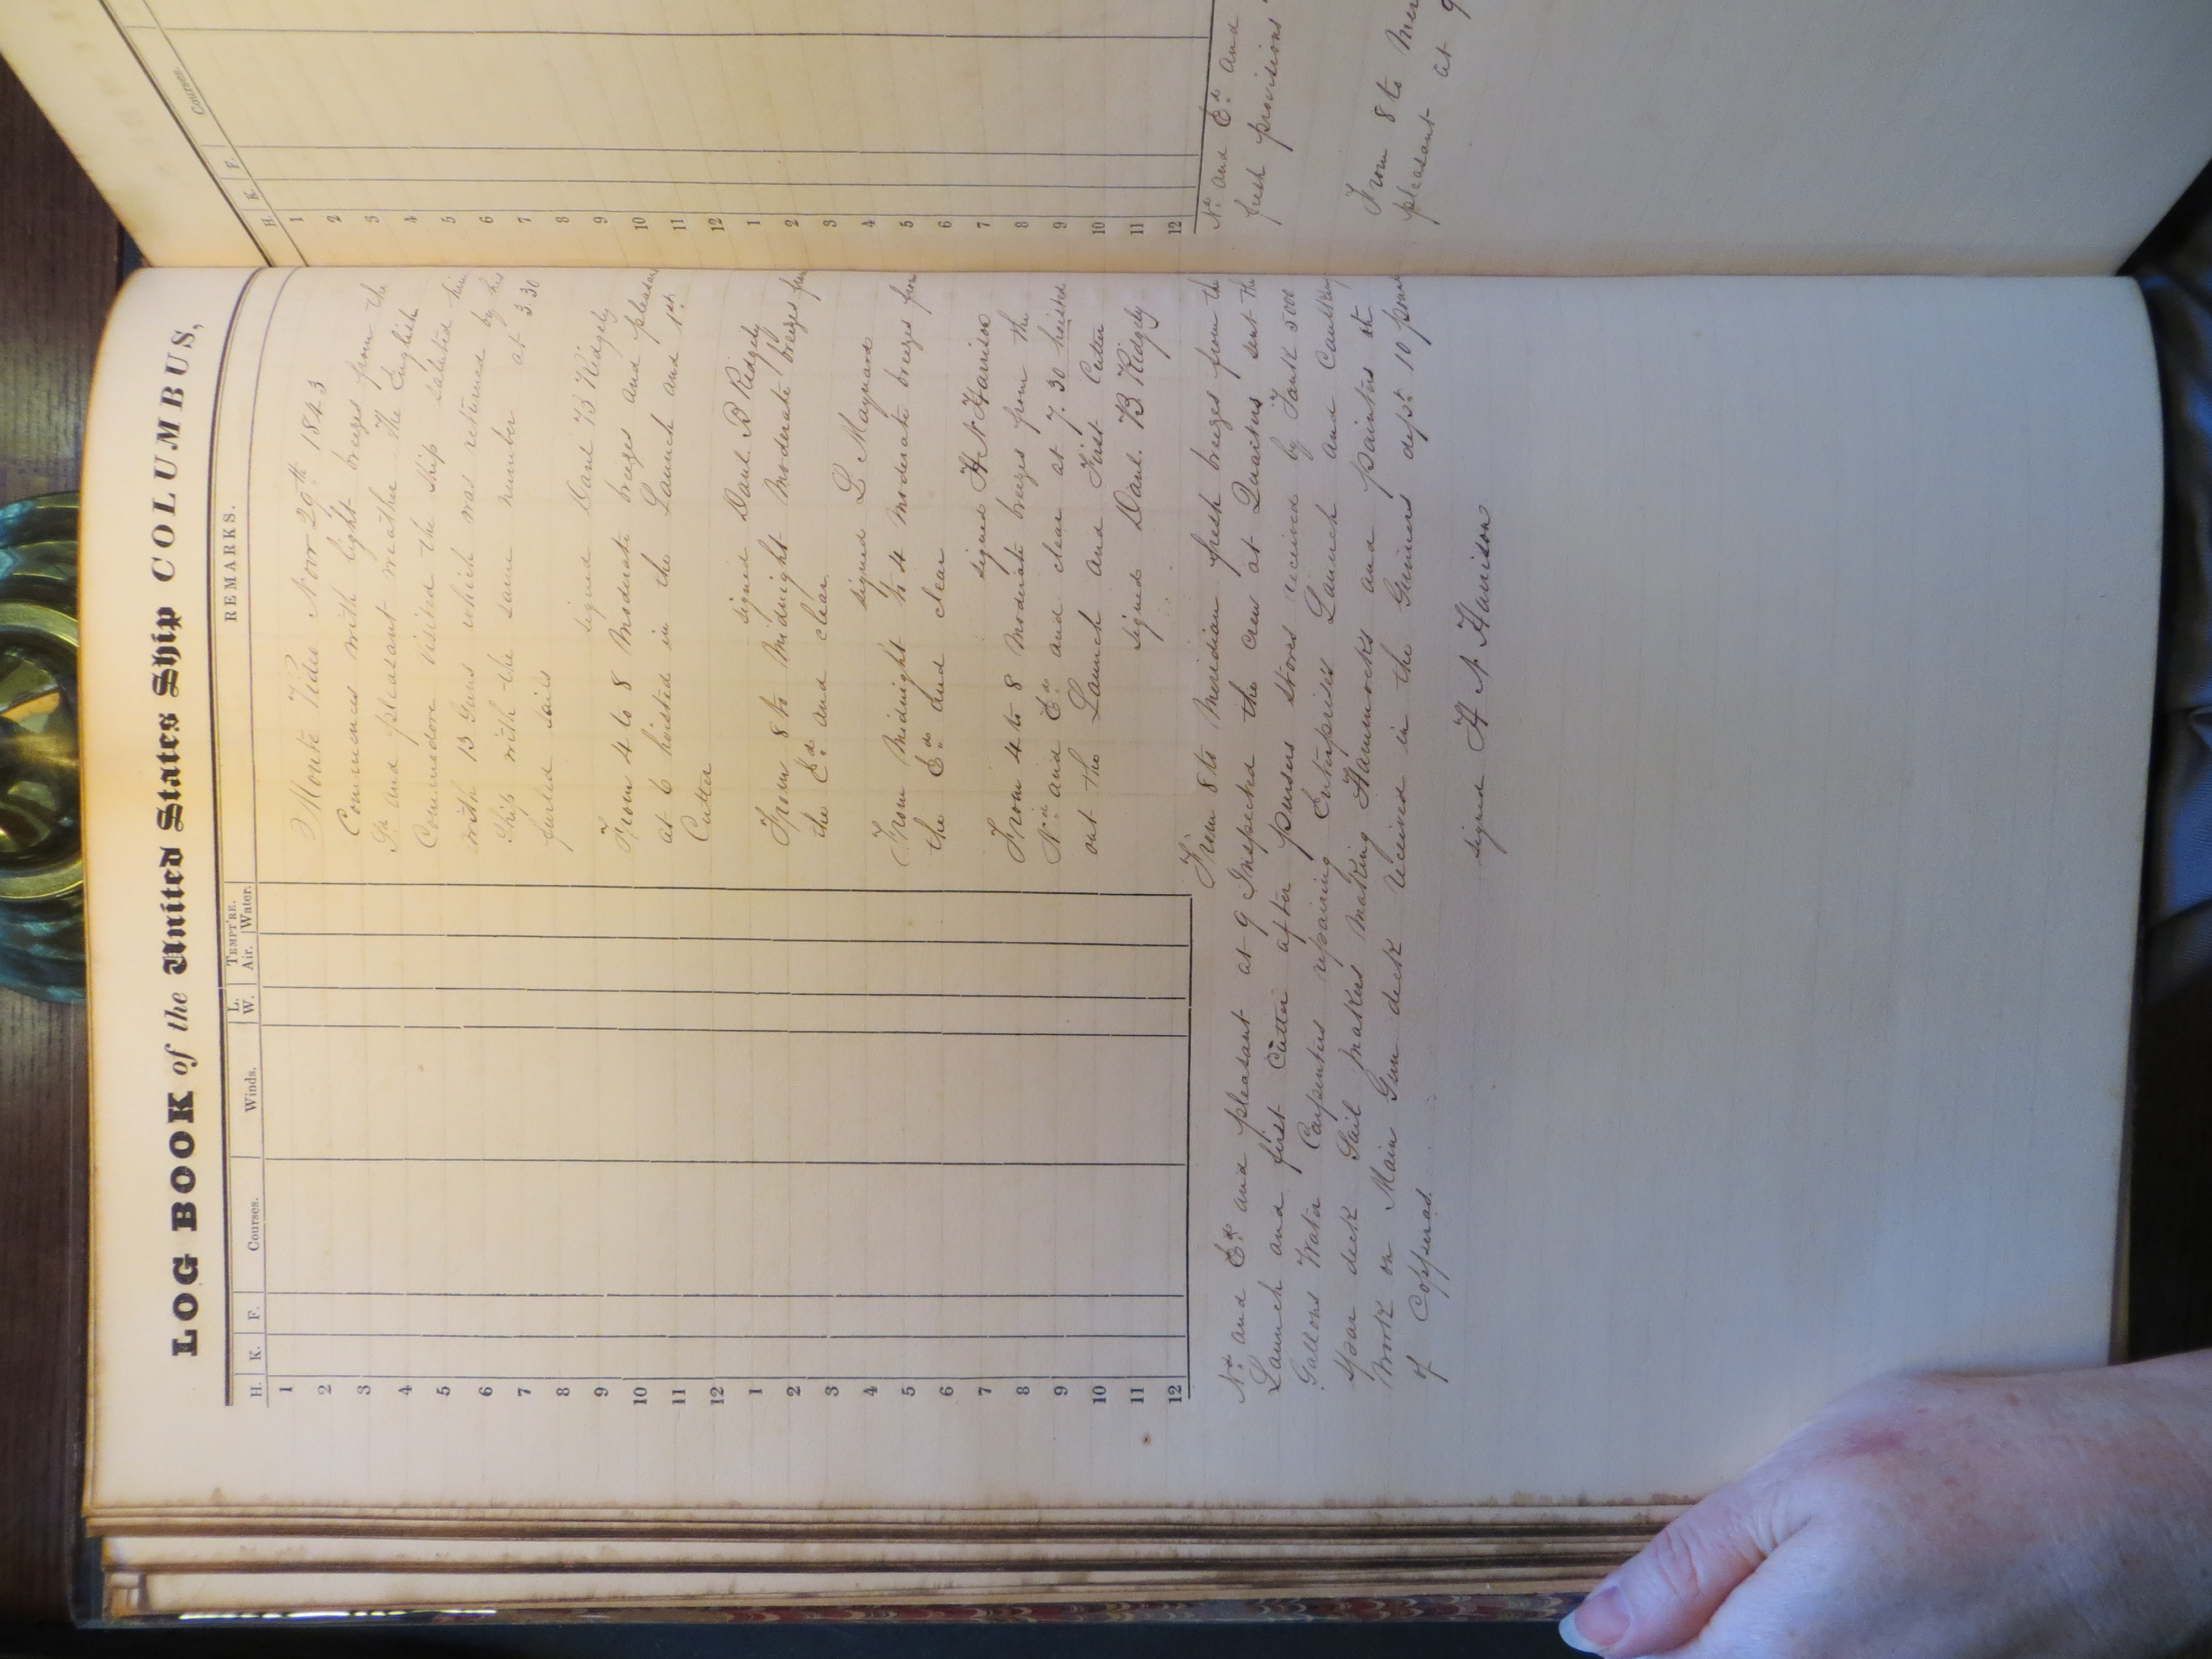 LOG BOOK of the United States Ship COLUMBUS,
H. K. F. Courses. Winds. L. W. TEMPT'RE. Air. Water. REMARKS.
1
2
3
4
5
6
7
8
9
10
11
12
1
2
3
4
5
6
7
8
9
10
11
12
Monte Video Novr 29th 1843
Commences with light breezes from the
Sd and pleasant weather The English
Commodore visited the Ship saluted him
with 13 Guns which was returned by his
Ship with the same number at 3.30
furled sails
signed Danl B Ridgely
From 4 to 8 Moderate breezes and pleasant
at 6 hoisted in the Launch and 1st
Cutter
signed Danl. B Ridgely
From 8 to Midnight Moderate breezes from
the Ed and clear
signed L Maynard
From Midnight to 4 Moderate breezes from
the Ed and clear
signed H N Harrison
From 4 to 8 Moderate breezes from the
Nd and Ed and clear at 7.30 hoisted
out the Launch and First Cutter
signed Danl. B. Ridgely
From 8 to Meridian fresh breezes from the
Nd and Ed and pleasant at 9 Inspected the crew at Quarters sent the
Launch and first Cutter after pursers stores received by Tank 5000
Gallons Water Carpenters repairing Enterprises Launch and Caulking
Spar deck Sail makers making Hammocks and painters at
Work on Main Gun deck received in the Gunners dept. 10 pounds
of Copperas.
signed H N Harrison
H. K. F. Courses
1
2
3
4
5
6
7
8
9
10
11
12
1
2
3
4
5
6
7
8
9
10
11
12
Nd and Ed and
fresh provisions
From 8 to Mer
pleasant at 9